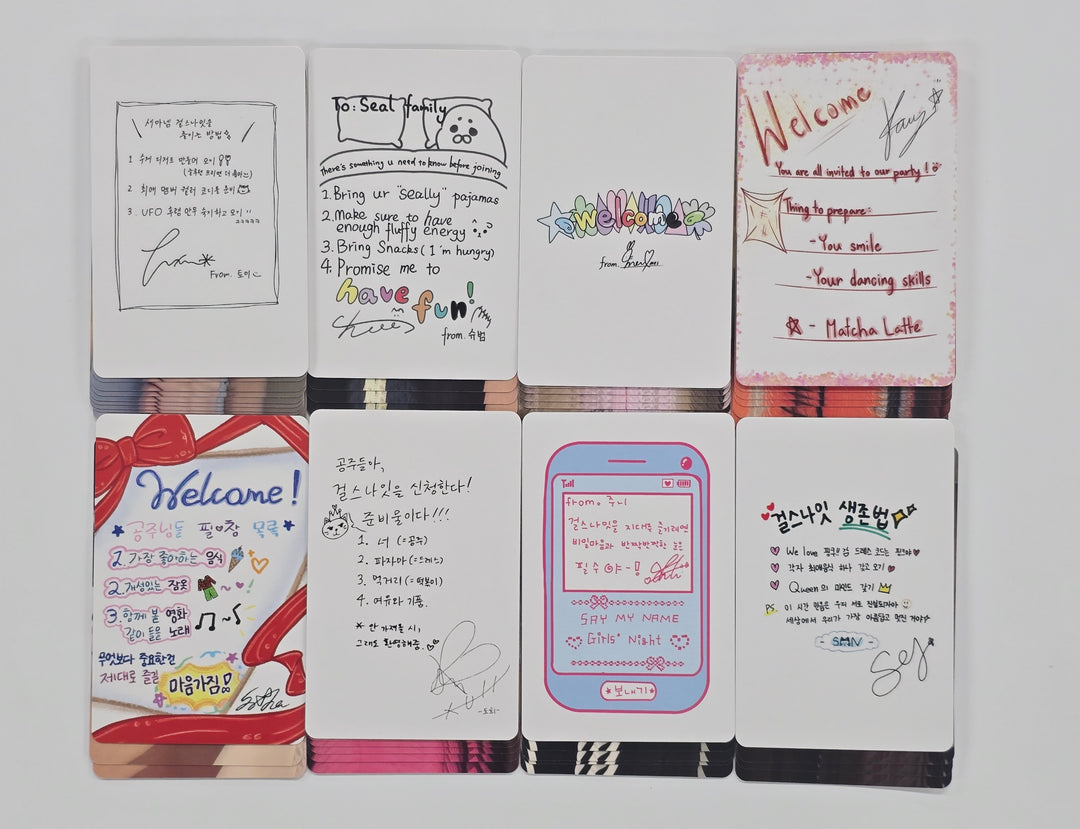 세마넴 걸스나잇을
즐기는 방법
1 수제 디저트 만들어 오기
2 최애 멤버 컬러 코디로 오기
3. UFO 후렴 안무 숙지하고 오기 ^^
ㅋㅋㅋㅋㅋ
From. 도히
To: Seal family
There's something u need to know before joining
1. Bring ur "seally" pajamas
2. Make sure to have
enough fluffy energy
3. Bring Snacks (I'm hungry)
4. Promise me to
have fun!
from. 슈범
welcome
from. mei
Welcome
You are all invited to our party!
Thing to prepare:
-You smile
-Your dancing skills
- Matcha Latte
Welcome!
공주님들 필♥참 목록
1. 가장 좋아하는 음식
2. 개성있는 잠옷
3. 함께 볼 영화
같이 들을 노래
무엇보다 중요한건
제대로 즐길
마음가짐!
공주들아,
걸스나잇을 신청한다!
준비물이다!!!
1. 너 (=공주)
2. 파자마 (=드레스)
3. 먹거리 (=떡볶이)
4. 여유와 기품.
* 안 가져올 시,
그래도 환영해줌.
-도희-
from. 주니
걸스나잇을 지대루 즐기려면
비밀마음과 반짝반짝한 눈은
필수야~!
SAY MY NAME
Girls' Night
*보내기*
걸스나잇 생존법
We love 핑크!! 검 드레스 코드는 핑크야
각자 최애음식 하나 갖고 오기
Queen의 마인드 갖기
PS. 이 시간 만큼은 우리 서로 진실되자아
세상에서 우리가 가장 아름답고 멋진 거야
SMN